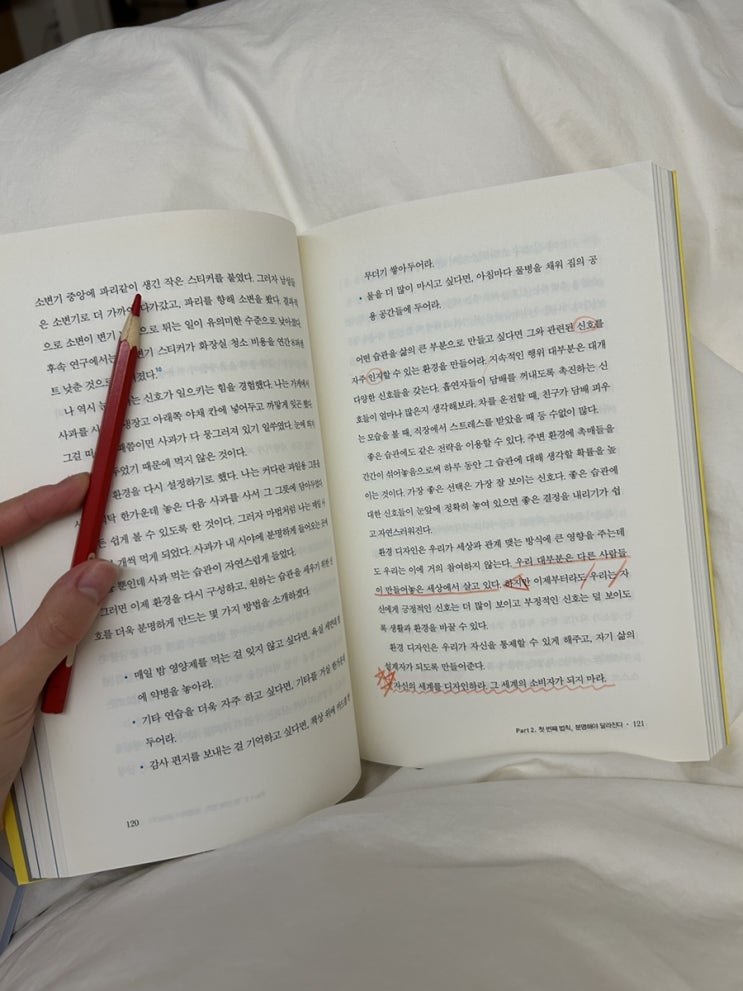 소변기 중앙에 파리같이 생긴 작은 스티커를 붙였다. 그러자 남성들
은 소변기로 더 가까이 다가갔고, 파리를 향해 소변을 봤다. 결과적
으로 소변이 변기 밖으로 튀는 일이 유의미한 수준으로 낮아졌다.
후속 연구에서는 변기 스티커가 화장실 청소 비용을 연간
트 낮춘 것으로
나 역시 눈에 신호가 일으키는 힘을 경험했다. 나는 가게에서
사과를 냉장고 아래쪽 야채 칸에 넣어두고 까맣게 잊곤 했다.
그걸 때쯤이면 사과가 다 뭉그러져 있기 일쑤였다. 눈에
었기 때문에 먹지 않은 것이다.
환경을 다시 설정하기로 했다. 나는 커다란 과일용 그릇을
식탁 한가운데 놓은 다음 사과를 사서 그 그릇에 담아두었다.
쉽게 볼 수 있도록 한 것이다. 그러자 마법처럼 나는 매일
개씩 먹게 되었다. 사과가 내 시야에 분명하게 들어오는 곳에
뿐인데 사과 먹는 습관이 자연스럽게 들었다.
그러면 이제 환경을 다시 구성하고, 원하는 습관을 세우기 위한
호를 더욱 분명하게 만드는 몇 가지 방법을 소개하겠다.
• 매일 밤 영양제를 먹는 걸 잊지 않고 싶다면, 욕실 세면대 옆
에 약병을 놓아라.
• 기타 연습을 더욱 자주 하고 싶다면, 기타를 거실 한가운데
두어라.
• 감사 편지를 보내는 걸 기억하고 싶다면, 책상 위에 카드를 한
120
무더기 쌓아두어라.
• 물을 더 많이 마시고 싶다면, 아침마다 물병을 채워 집의 공
용 공간들에 두어라.
어떤 습관을 삶의 큰 부분으로 만들고 싶다면 그와 관련된 신호를
자주 인지할 수 있는 환경을 만들어라. 지속적인 행위 대부분은 대개
다양한 신호들을 갖는다. 흡연자들이 담배를 꺼내도록 촉진하는 신
호들이 얼마나 많은지 생각해보라. 차를 운전할 때, 친구가 담배 피우
는 모습을 볼 때, 직장에서 스트레스를 받았을 때 등 수없이 많다.
좋은 습관에도 같은 전략을 이용할 수 있다. 주변 환경에 촉매들을
간간이 섞어놓음으로써 하루 동안 그 습관에 대해 생각할 확률을 높
이는 것이다. 가장 좋은 선택은 가장 잘 보이는 신호다. 좋은 습관에
대한 신호들이 눈앞에 정확히 놓여 있으면 좋은 결정을 내리기가 쉽
고 자연스러워진다.
환경 디자인은 우리가 세상과 관계 맺는 방식에 큰 영향을 주는데
도 우리는 이에 거의 참여하지 않는다. 우리 대부분은 다른 사람들
이 만들어놓은 세상에서 살고 있다. 하지만 이제부터라도 우리는 자
신에게 긍정적인 신호는 더 많이 보이고 부정적인 신호는 덜 보이도
록 생활과 환경을 바꿀 수 있다.
환경 디자인은 우리가 자신을 통제할 수 있게 해주고, 자기 삶의
설계자가 되도록 만들어준다.
자신의 세계를 디자인하라. 그 세계의 소비자가 되지 마라.
Part 2. 첫 번째 법칙, 분명해야 달라진다 • 121